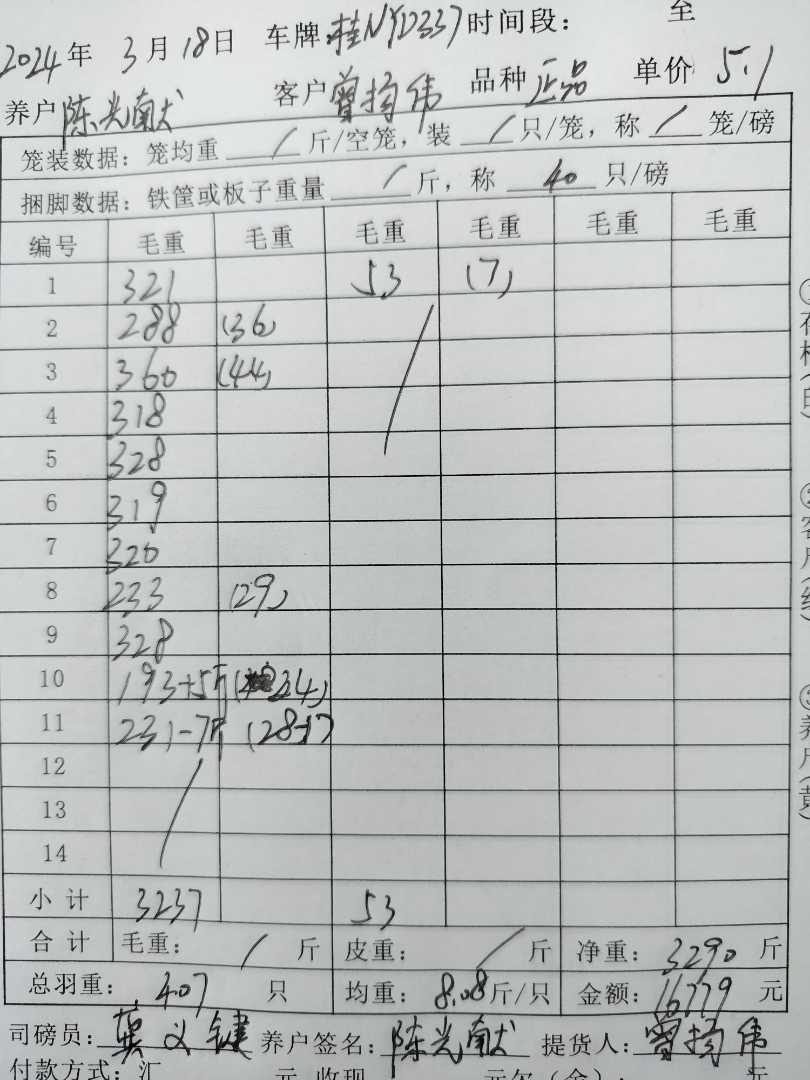 2024年 3月18日 车牌:桂NYD337 时间段: 至
养户 陈光献 客户 曾扬伟 品种 正品 单价 5.1
笼装数据: 笼均重 / 斤/空笼, 装 / 只/笼, 称 / 笼/磅
捆脚数据: 铁筐或板子重量 / 斤, 称 40 只/磅
编号 毛重 毛重 毛重 毛重 毛重 毛重
1 321 53 (7)
2 288 (36)
3 360 (44)
4 318
5 328
6 319
7 320
8 233 (29)
9 328
10 193+5斤 (24)
11 231-7斤 (28-1)
12
13
14
小计 3237 53
合计 毛重: / 斤 皮重: / 斤 净重: 3290 斤
总羽重: 407 只 均重: 8.08斤/只 金额: 16779 元
司磅员: 龚义健 养户签名: 陈光献 提货人: 曾扬伟
付款方式: 汇 元 收现 元欠(余): 元